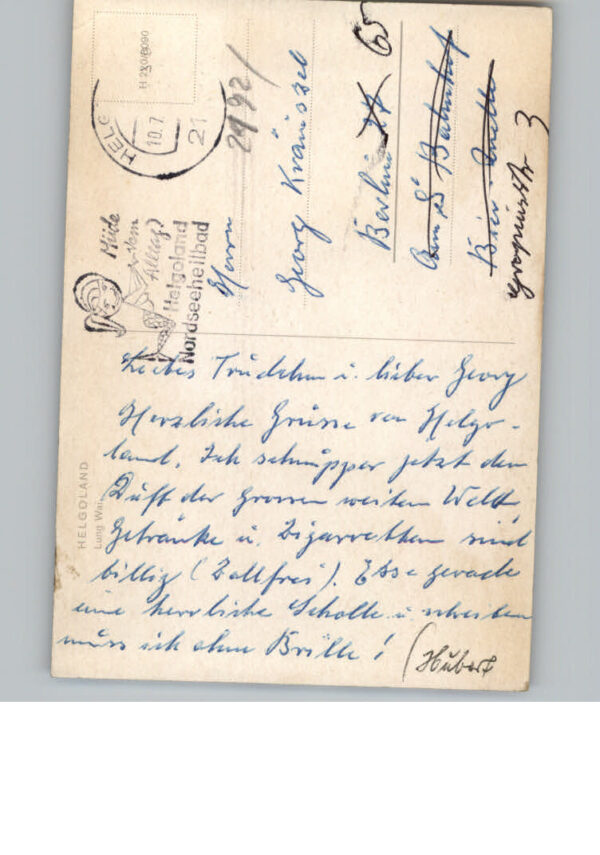 Liebes Trudchen u. lieber Georg
Herzliche Grüsse von Helgo-
land. Ich schnupper jetzt den
Duft der grossen weiten Welt
Getränke u. Zigarretten sind
billig (Zollfrei). Esse gerade
eine herrliche Scholle u. schreiben
muss ich ohne Brille!
(Hubert
HELGOLAND
Lung Wai
H 220/8090
HELG
10.7
21
2192/
Müde
vom
Alltag?
Helgoland
Nordseeheilbad
Herrn
Georg Kräuszel
Berlin 65
Am Bahnhof
3